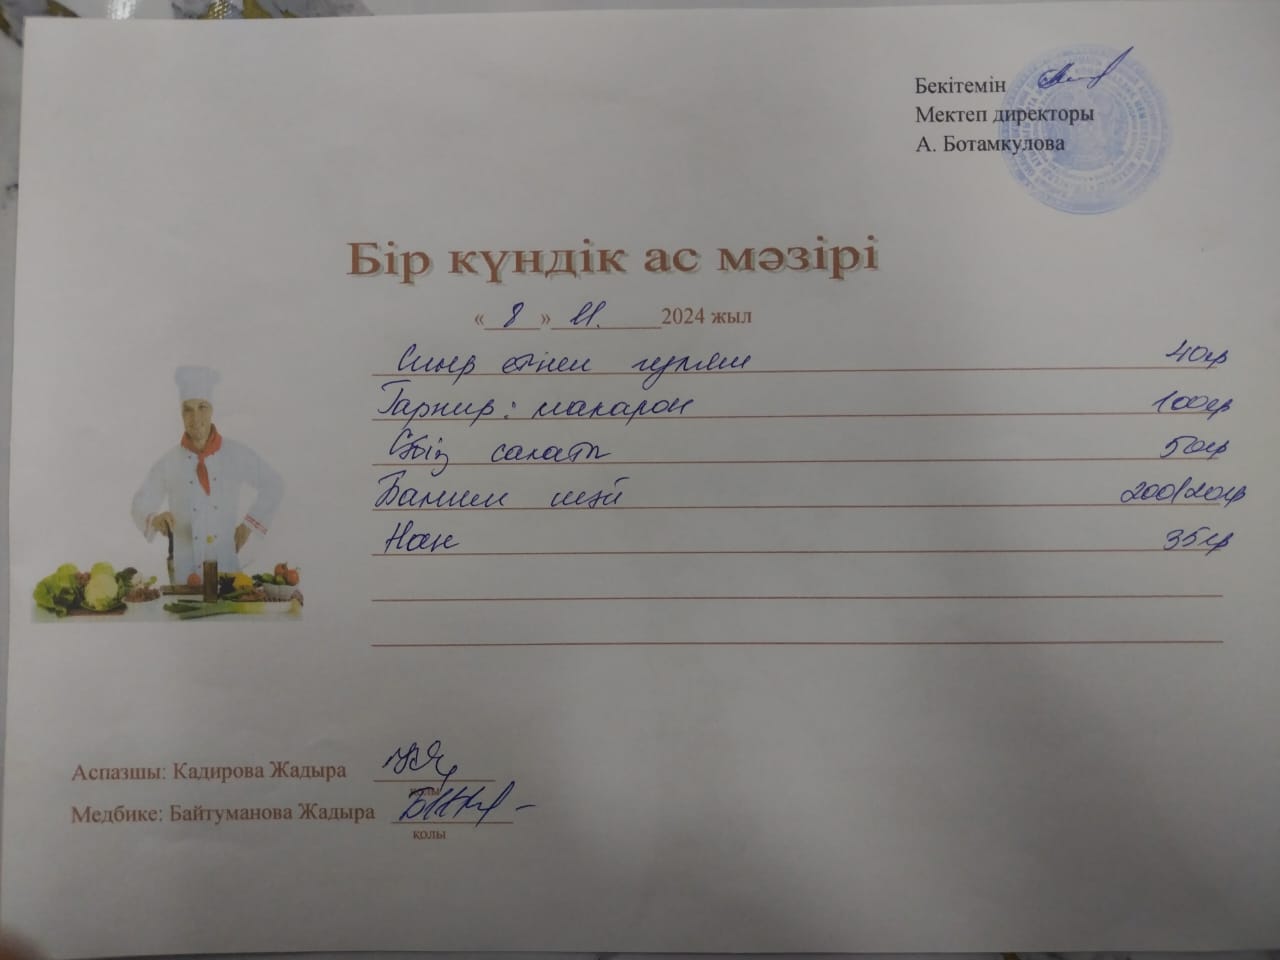 Бекітемін
Мектеп директоры
А. Ботамкулова
Бір күндік ас мәзірі
« 8 » 11. 2024 жыл
Сиыр етінен гуляш 40гр
Гарнир: макарон 100гр
Сәбіз салаты 50гр
Балмен шәй 200/20гр
Нан 35гр
Аспазшы: Кадирова Жадыра
қолы
Медбике: Байтуманова Жадыра
қолы